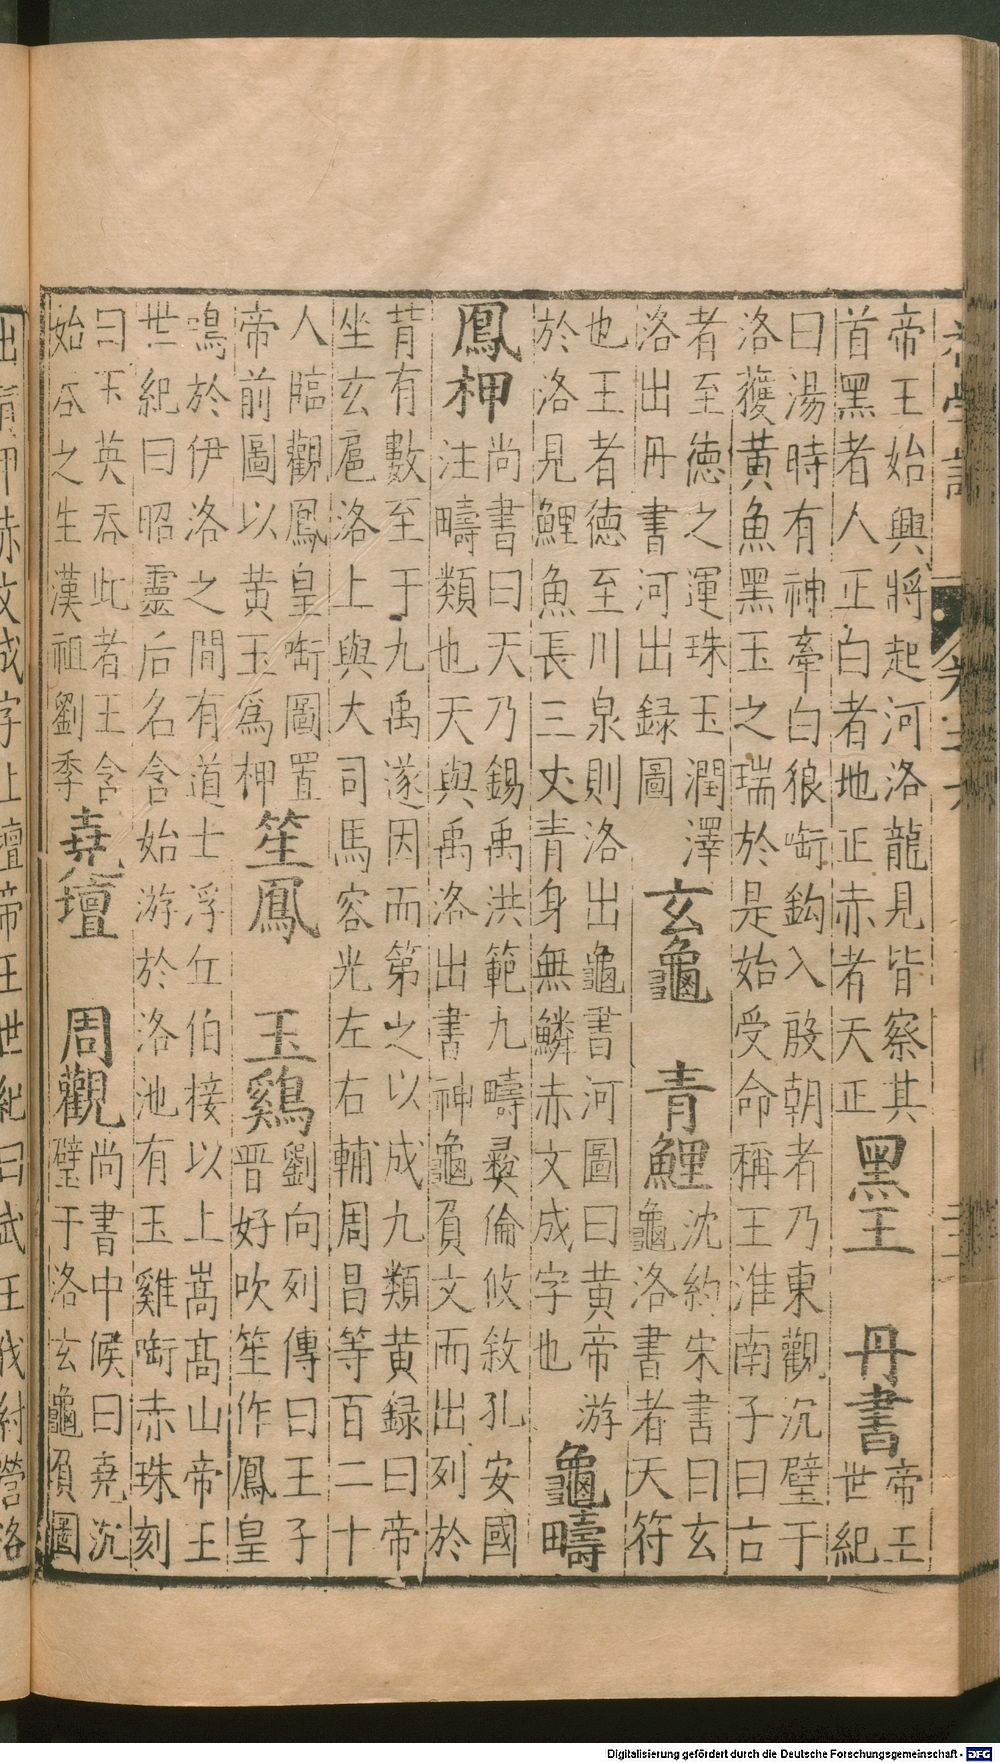 初學記 卷六
帝王始興將起河洛龍見皆察其
首黑者人正白者地正赤者天正
黑王 丹書
帝王
世紀
曰湯時有神牽白狼㗸鈎入殷朝者乃東觀沉璧于
洛獲黃魚黑玉之瑞於是始受命稱王淮南子曰古
者至德之運珠玉潤澤
洛出丹書河出録圖
玄龜 青鯉
沈約宋書曰玄
龜洛書者天符
也王者德至川泉則洛出龜書河圖曰黃帝游
於洛見鯉魚長三丈青身無鱗赤文成字也
龜疇
鳳柙
尚書曰天乃錫禹洪範九疇彝倫攸敘孔安國
注疇類也天與禹洛出書神龜負文而出列於
背有數至于九禹遂因而第之以成九類黃録曰帝
坐玄扈洛上與大司馬容光左右輔周昌等百二十
人臨觀鳳皇㗸圖置
帝前圖以黃玉爲柙
笙鳳 玉鷄
劉向列傳曰王子
晋好吹笙作鳳皇
鳴於伊洛之間有道士浮丘伯接以上嵩高山帝王
世紀曰昭靈后名含始游於洛池有玉雞㗸赤珠刻
曰玉英吞此者王含
始吞之生漢祖劉季
堯壇 周觀
尚書中候曰堯沉
璧于洛玄龜負圖
出背甲赤文成字止壇帝王世紀曰武王伐紂營洛
Digitalisierung gefördert durch die Deutsche Forschungsgemeinschaft - DFG